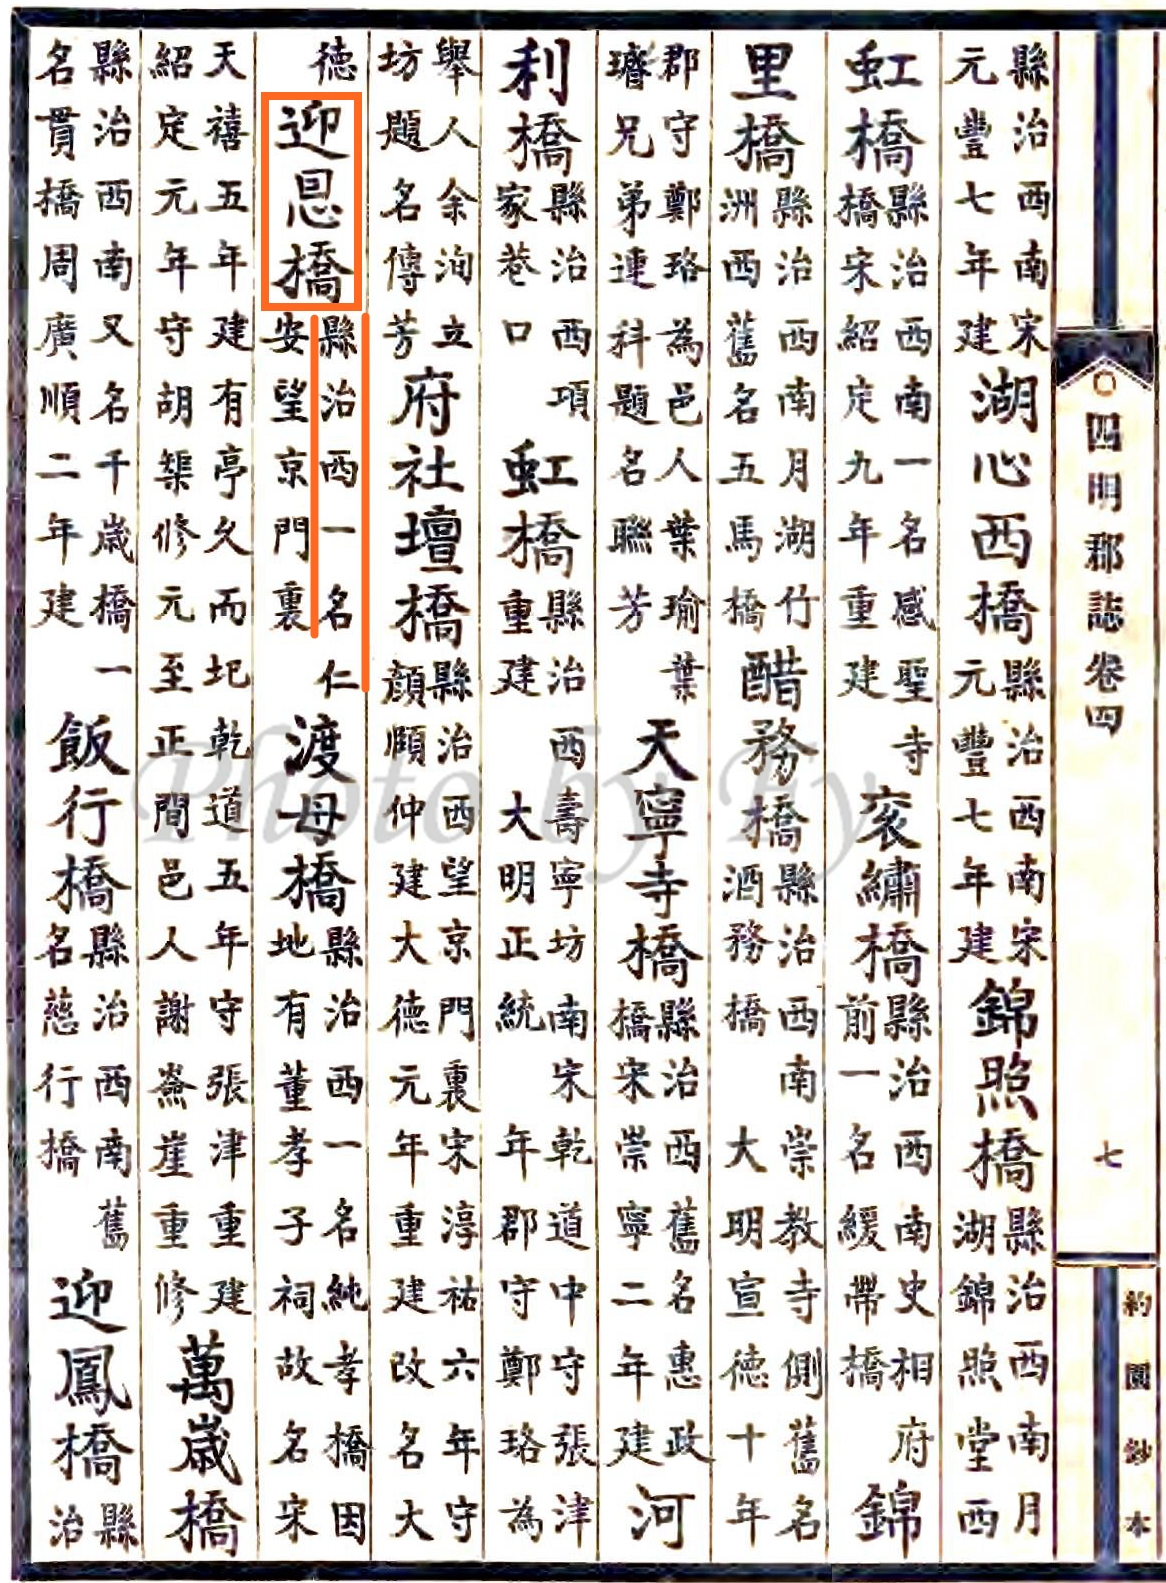 四明郡誌卷四
七
約園鈔本
縣治西南宋元豐七年建湖心西橋縣治西南宋元豐七年建錦照橋縣治西南月湖錦照堂西
虹橋縣治西南一名感聖寺橋宋紹定九年重建衮繡橋縣治西南史相府前一名緩帶橋錦
里橋縣治西南月湖竹洲西舊名五馬橋醋務橋縣治西南崇教寺側舊名酒務橋大明宣德十年
郡守鄭珞為邑人葉瑜葉璿兄弟連科題名聯芳天寧寺橋縣治西舊名惠政橋宋崇寧二年建河
利橋縣治西項家巷口虹橋縣治西壽寧坊南宋乾道中守張津重建大明正統年郡守鄭珞為
舉人余洵立坊題名傳芳府社壇橋縣治西望京門裏宋淳祐六年守顏頤仲建大德元年重建改名大
德迎恩橋縣治西一名仁安望京門裏渡母橋縣治西一名純孝橋因地有董孝子祠故名宋
天禧五年建有亭久而圮乾道五年守張津重建紹定元年守胡榘修元至正間邑人謝嵞崖重修萬歲橋
縣治西南又名千歲橋一名貫橋周廣順二年建飯行橋縣治西南舊名慈行橋迎鳳橋縣治
Photo by